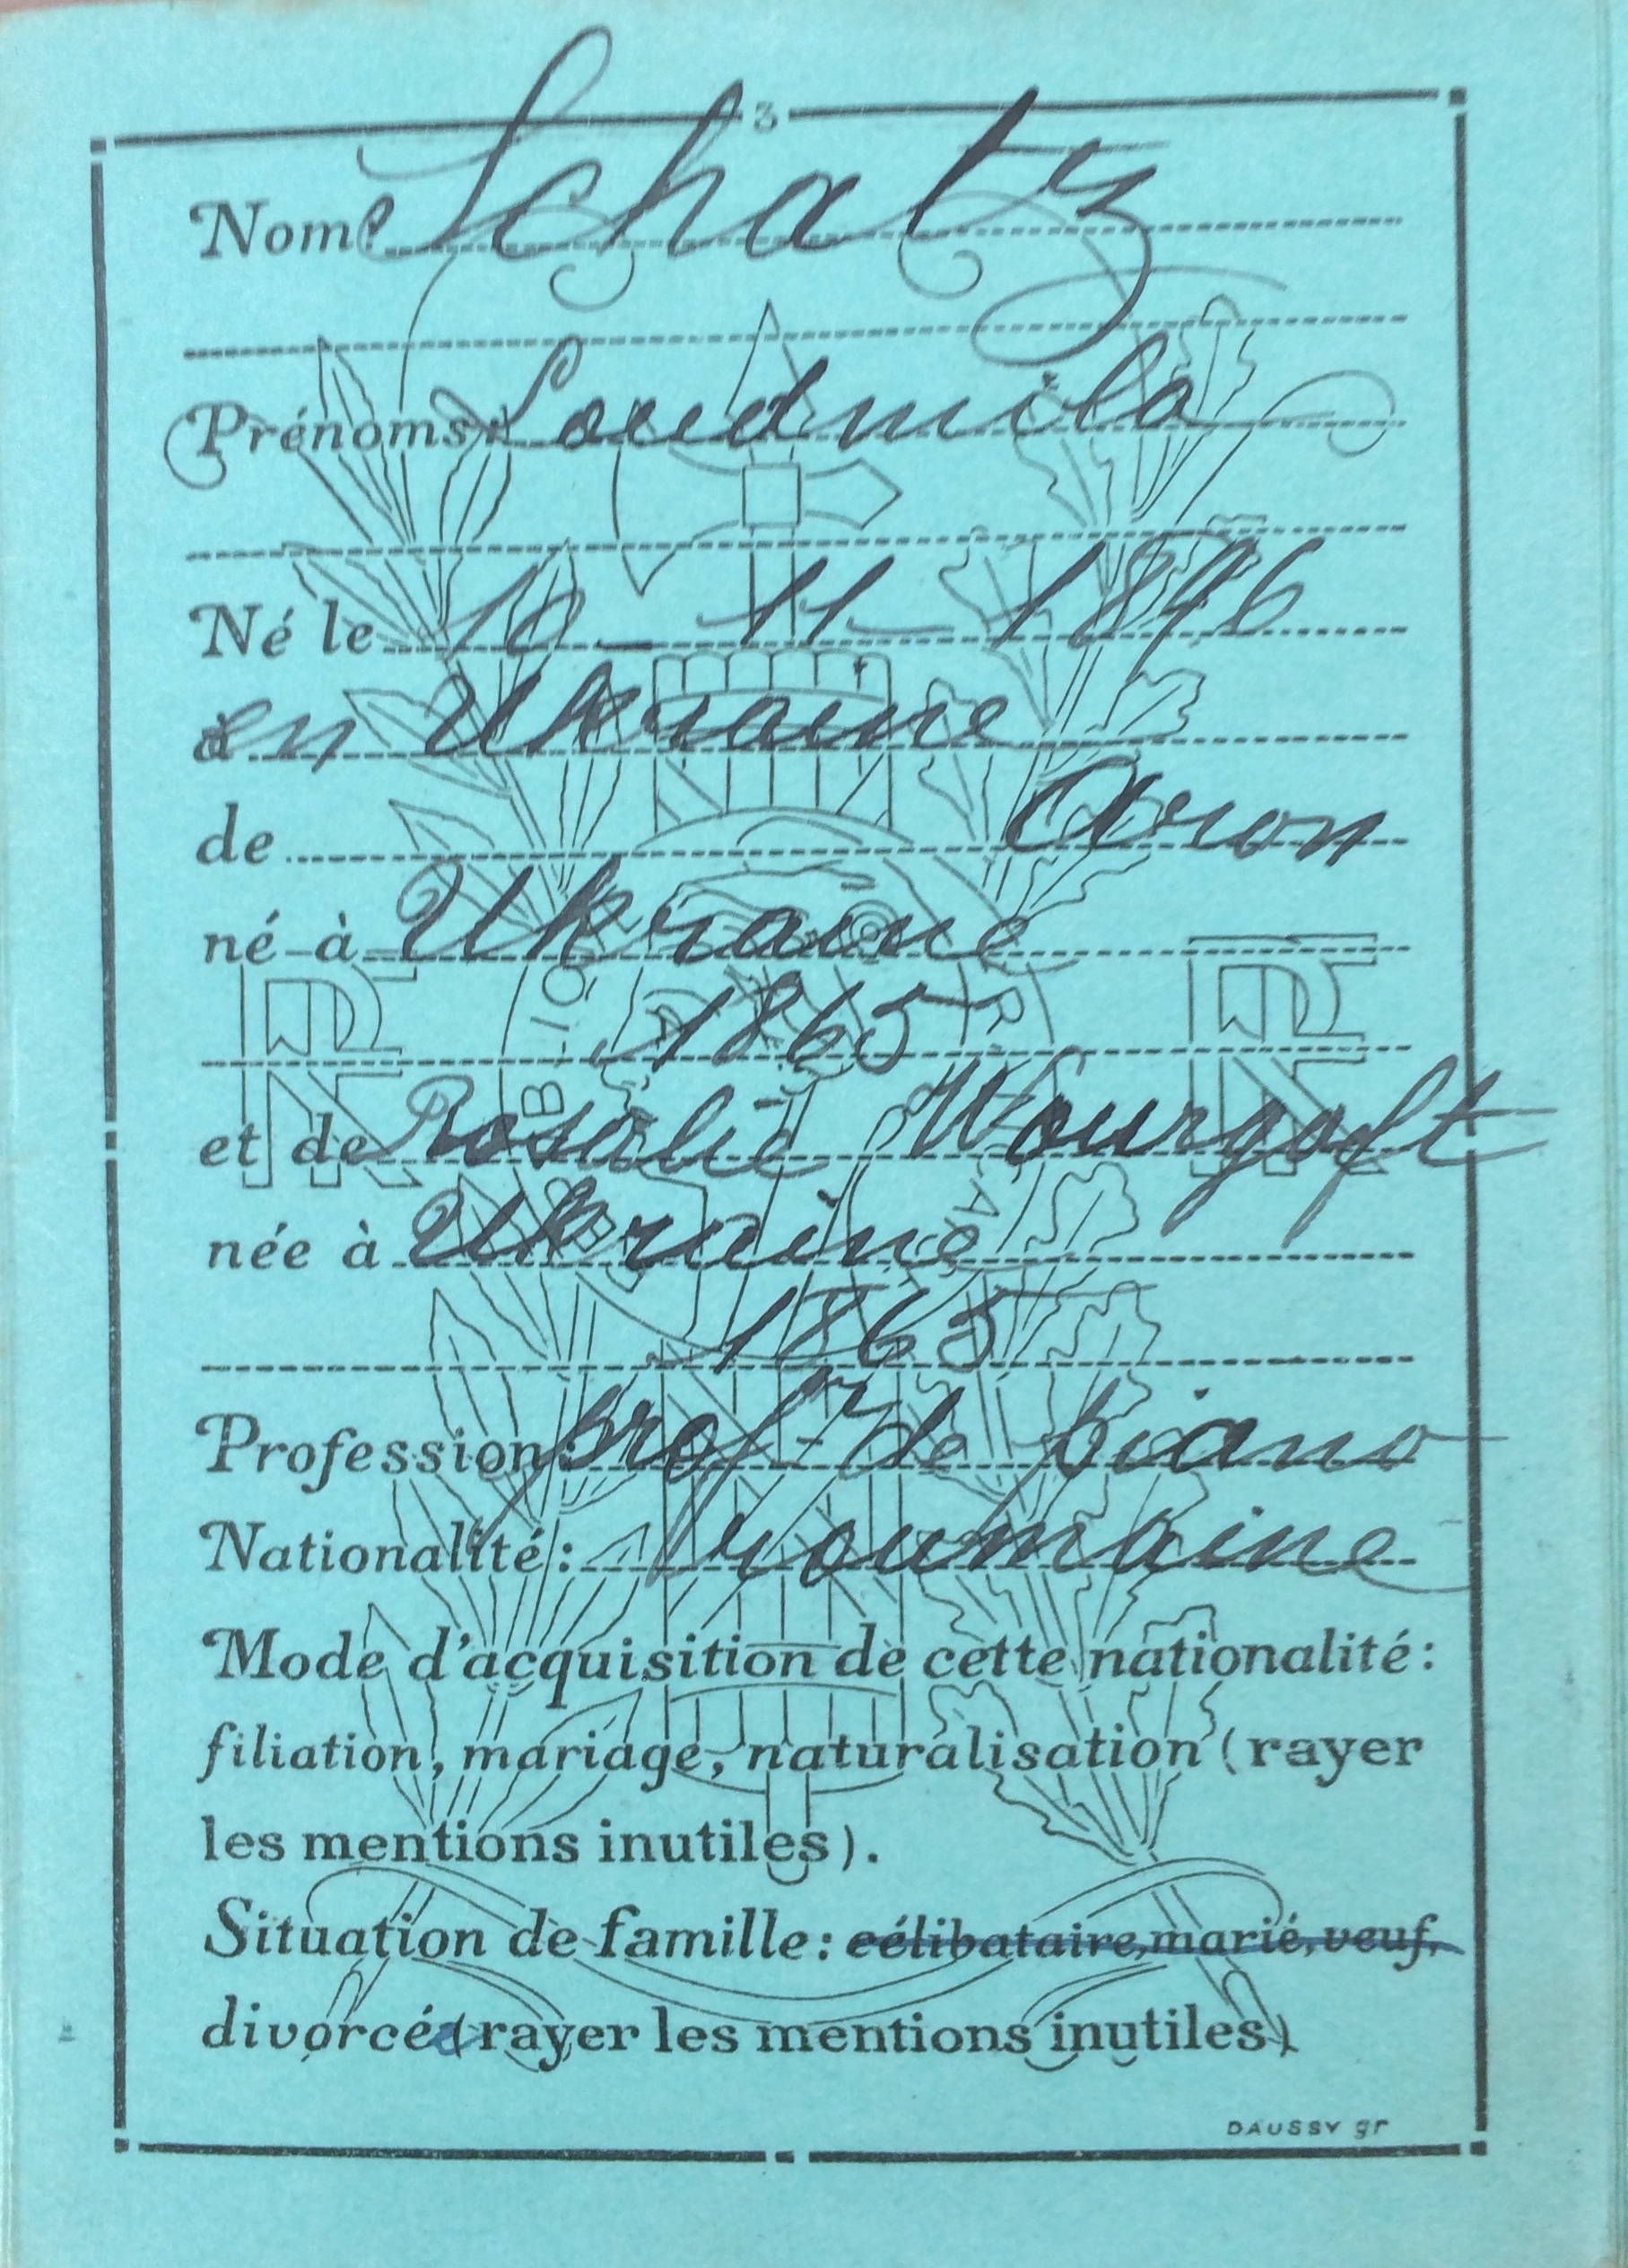 3
Nom: Schatz
Prénoms: Loudmila
Né le 10 - 11 - 1896
en Ukraine
de Aron
né à Ukraine
1865
et de Rosalie Wourgaft
née à Ukraine
1865
Profession: prof de piano
Nationalité: roumaine
Mode d'acquisition de cette nationalité:
filiation, mariage, naturalisation (rayer
les mentions inutiles).
Situation de famille: célibataire, marié, veuf,
divorcée (rayer les mentions inutiles)
DAUSSY gr